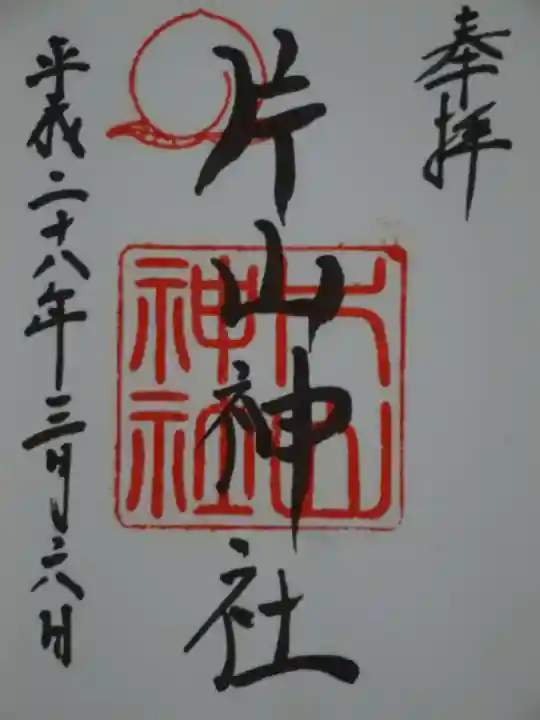 奉拝
片山神社
片山神社
平成二十八年三月六日